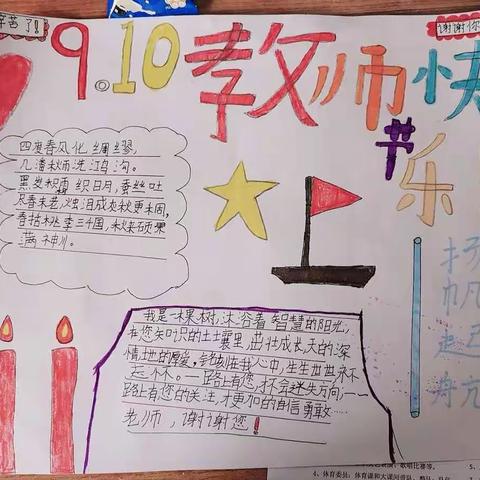 辛苦了!
谢谢你
9.10教师节快乐
四度春风化绸缪,
几番秋雨洗鸿沟。
黑发积霜织日月,蚕丝吐
尽春未老,烛泪成灰秋更稠,
春播桃李三千圃,秋来硕果
满神州。
扬帆起航
我是一棵树,沐浴着智慧的阳光,
在您知识的土壤里,茁壮成长,天的深
情,地的厚爱,铭刻在我心中,生生世世永不
忘。一路上有您,我不会迷失方向,一
路上有您的关注,才更加的自信勇敢
老师,谢谢您!
4、体育委员: